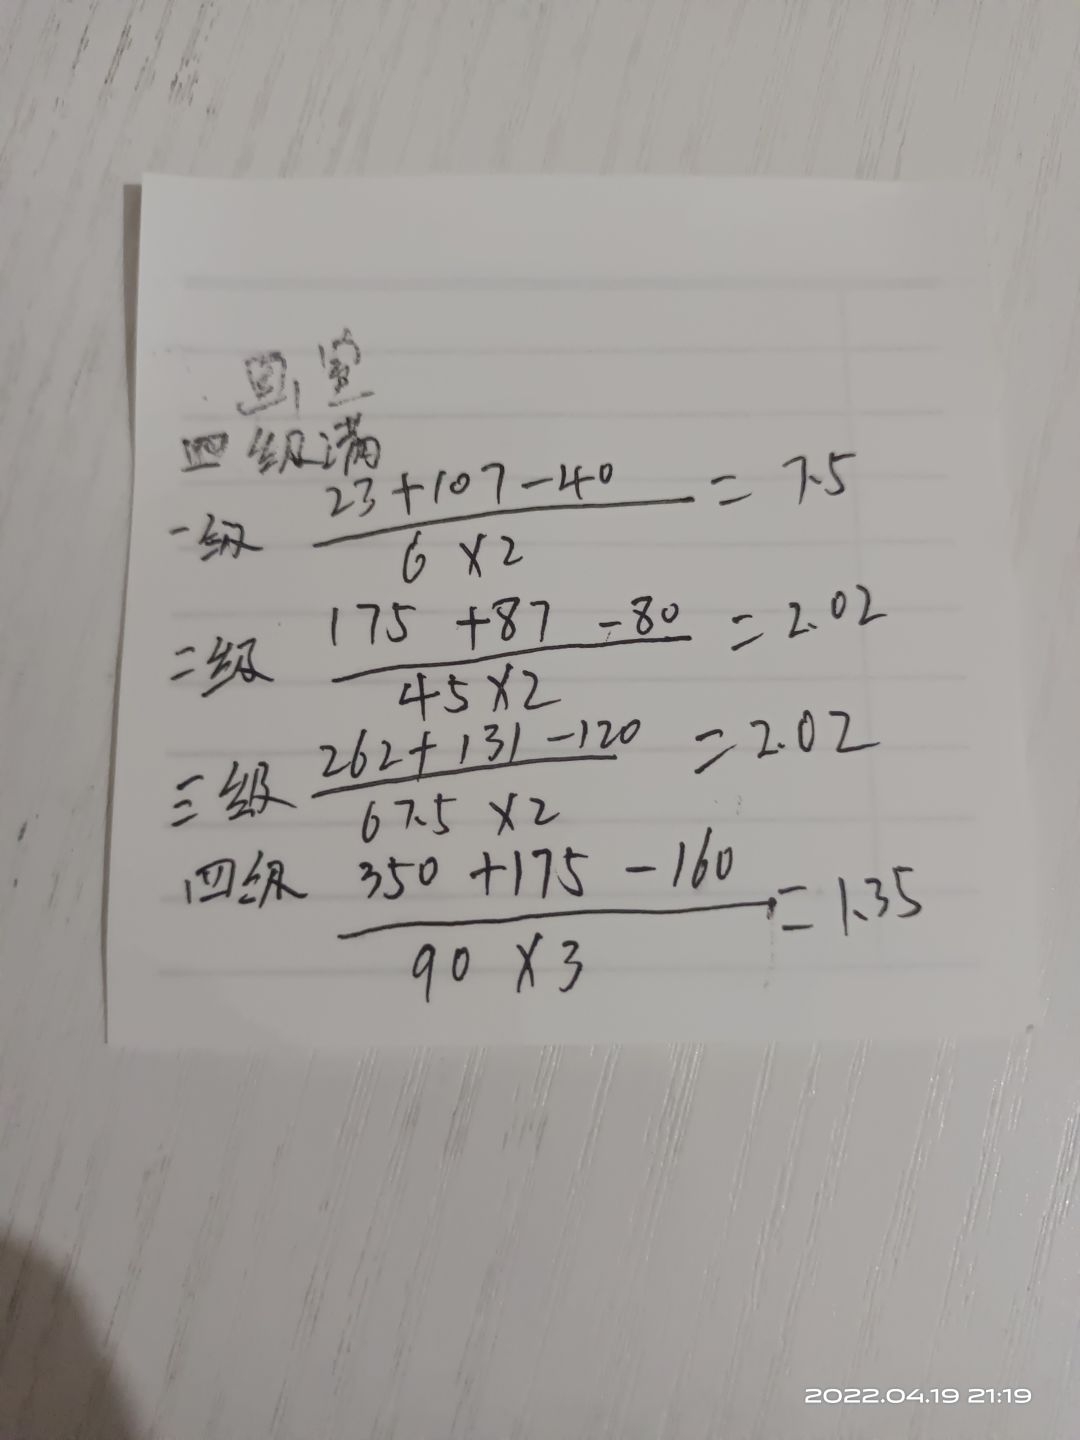 四级满
一级 23+107-40 / 6×2 = 7.5
二级 175+87-80 / 45×2 = 2.02
三级 262+131-120 / 67.5×2 = 2.02
四级 350+175-160 / 90×3 = 1.35
2022.04.19 21:19